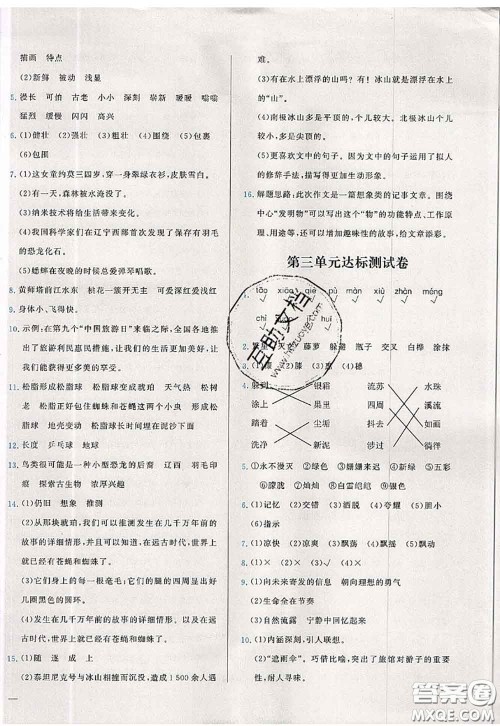 描画　特点
(2)新鲜　被动　浅显
5. 漫长　可怕　古老　小小　深刻　崭新　暖暖　嗡嗡
猛烈　缓慢　闪闪　高兴
6. (1)健壮　(2)强壮　(3)粗壮　(4)围裹　(5)包裹
(6)包围
7. (1)这女童约莫三四岁,穿一身翠绿衣衫,皮肤雪白。
(2)有一天,森林被水淹没了。
(3)纳米技术将给生活带来变化。
(4)我国科学家们在辽宁西部首次发现了保存有羽毛
的恐龙化石。
(5)蟋蟀在夜晚的时候总爱弹琴唱歌。
8. 黄师塔前江水东　桃花一簇开无主　可爱深红爱浅红
9. 身体小、飞得快。
10. 示例:在第九个“中国旅游日”来临之际,全国各地推
出了旅游利民惠民措施,让我们的生活更加美好,让
我们的出行更加便利。
11. 松脂形成松脂球　松脂球形成琥珀　天气热　松树
老　松脂小时掉下包住蜘蛛和苍蝇　松脂形成松脂
球　松脂球滚动　松脂球长时间掩埋在泥沙下
12. 长度　乒乓球　地球
13. 鸟类很可能是一种小型恐龙的后裔　辽西　羽毛印
痕　探索　探索古生物　浓厚兴趣
14. (1)仍旧　想象　推测
(2)从那块琥珀,我们可以推测发生在几千万年前的
故事的详细情形,并且可以知道,在远古时代,世界上
就已经有苍蝇和蜘蛛了。
(3)它们身子的周围有几圈黑色的圆环。
(4)发生在几千万年前的故事的详细情形,以及在远
古时代,世界上就已经有苍蝇和蜘蛛了。
15. (1)随　逐　成　上
(2)泰坦尼克号与冰山相撞而沉没,造成1 500余人遇
难。
(3)有在水上漂浮的山吗?有!冰山就是漂浮在水上
的“山”。
(4)南极冰山多是平顶的,个儿较大。北极冰山多是
尖顶的,个儿较小。
(5)更喜欢文中的句子,因为文中的句子运用了拟人
的修辞手法,描写得更加生动。
16. 解题思路:此次作文是一篇想象类的记事文章。围绕
中心“发明物”可以写出这个“物”的功能特点、工作原
理、用途等,还可以增加趣味性的故事,给文章添彩。
第三单元达标测试卷
1. tāo　xiāo　qiè　pàn　shuò　zhàn
chì　huì
2. 繁星　交错　藤萝　躲避　瓶子　交叉　白桦　涂抹
3. (1)膝　(2)膝　(3)　(4)穗
4. 躺到　银霜　流苏　水珠
涂上　晨里　四周　溪流
踏着　尘垢　抖去　如画
洗净　新泥　环绕　徜徉
5. ①永不漫灭　②绿色　③姗姗来迟　④新绿　⑤五彩
⑥朦胧　⑦灿灿　⑧白雷绾绾　⑨强烈
6. (1)记忆　(2)交错　(3)洒落　(4)夸耀　(5)摆脱
(6)指示
7. (1)凉凉　(2)凉爽　(3)飘荡　(4)飘扬　(5)飘动
8. (1)×　(2)√　(3)×　(4)√
9. (1)向未来寄发的信息　朝向理想的勇气
(2)生命全在生活中
(3)自然流露　宁静中回忆起来
10. (1)内涵深刻,引人联想。
(2)“遮雨伞”。巧借比喻,写出了旅馆对游子的重要
性,耐人寻味。
互助文档
www.hzuoye.com
答案圈
MXQE.COM